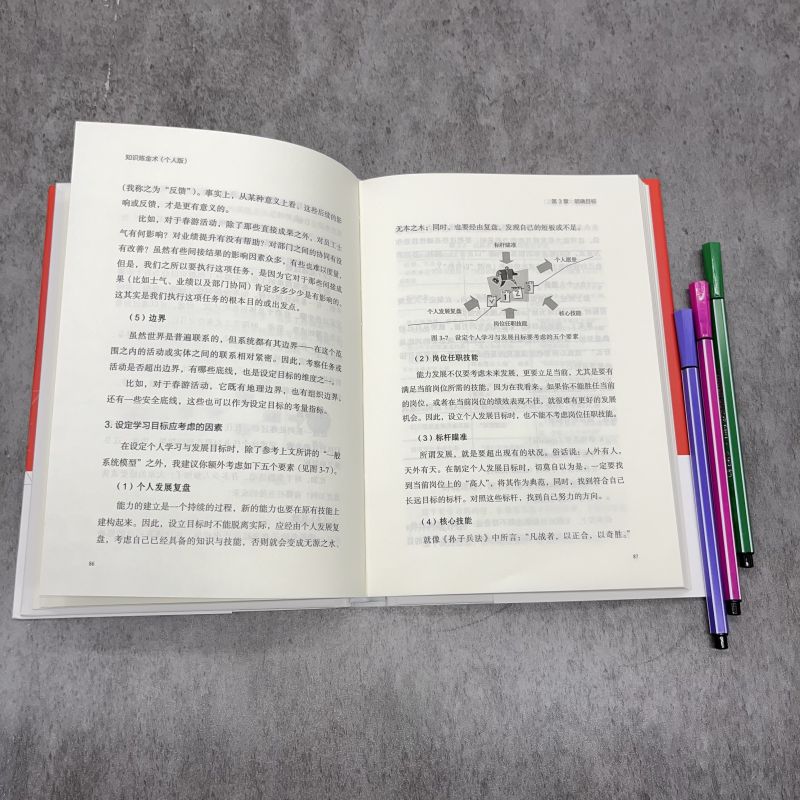 知识炼金术(个人版)
(我称之为“反馈”)。事实上,从某种意义上看,这些后续的影
响或反馈,才是更有意义的。
比如,对于春游活动,除了那些直接成果之外,对员工士
气有何影响?对业绩提升有没有帮助?对部门之间的协同有没
有改善?虽然有些间接结果的影响因素众多,有些也难以度量,
但是,我们之所以要执行这项任务,是因为它对于那些间接成
果(比如士气、业绩以及部门协同)肯定多多少少是有影响的,
这其实是我们执行这项任务的根本目的或出发点。
(5)边界
虽然世界是普遍联系的,但系统都有其边界——在这个范
围之内的活动或实体之间的联系相对紧密。因此,考察任务或
活动是否超出边界,有哪些底线,也是设定目标的维度之一。
比如,对于春游活动,它既有地理边界,也有组织边界,
还有一些安全底线,这些也可以作为设定目标的考量指标。
3. 设定学习目标应考虑的因素
在设定个人学习与发展目标时,除了参考上文所讲的“一般
系统模型”之外,我建议你额外考虑如下五个要素(见图3-7)。
(1)个人发展复盘
能力的建立是一个持续的过程,新的能力也要在原有技能上
建构起来。因此,设立目标时不能脱离实际,应经由个人发展复
盘,考虑自己已经具备的知识与技能,否则就会变成无源之水、
86
第3章 明确目标
无本之木;同时,也要经由复盘,发现自己的短板或不足。
标杆瞄准
个人愿景
个人发展复盘
岗位任职技能
核心技能
图3-7 设定个人学习与发展目标要考虑的五个要素
(2)岗位任职技能
能力发展不仅要考虑未来发展,更要立足当前,尤其是要有
满足当前岗位所需的技能。因为在我看来,如果你不能胜任当前
的岗位,或者在当前岗位的绩效表现不佳,就很难有更好的发展
机会。因此,设立个人发展目标时,也不能不考虑岗位任职技能。
(3)标杆瞄准
所谓发展,就是要超出现有的状况。俗话说:人外有人,
天外有天。在制定个人发展目标时,切莫自以为是,一定要找
到当前岗位上的“高人”,将其作为典范,同时,找到符合自己
长远目标的标杆。对照这些标杆,找到自己努力的方向。
(4)核心技能
就像《孙子兵法》中所言:“凡战者,以正合,以奇胜。”
87